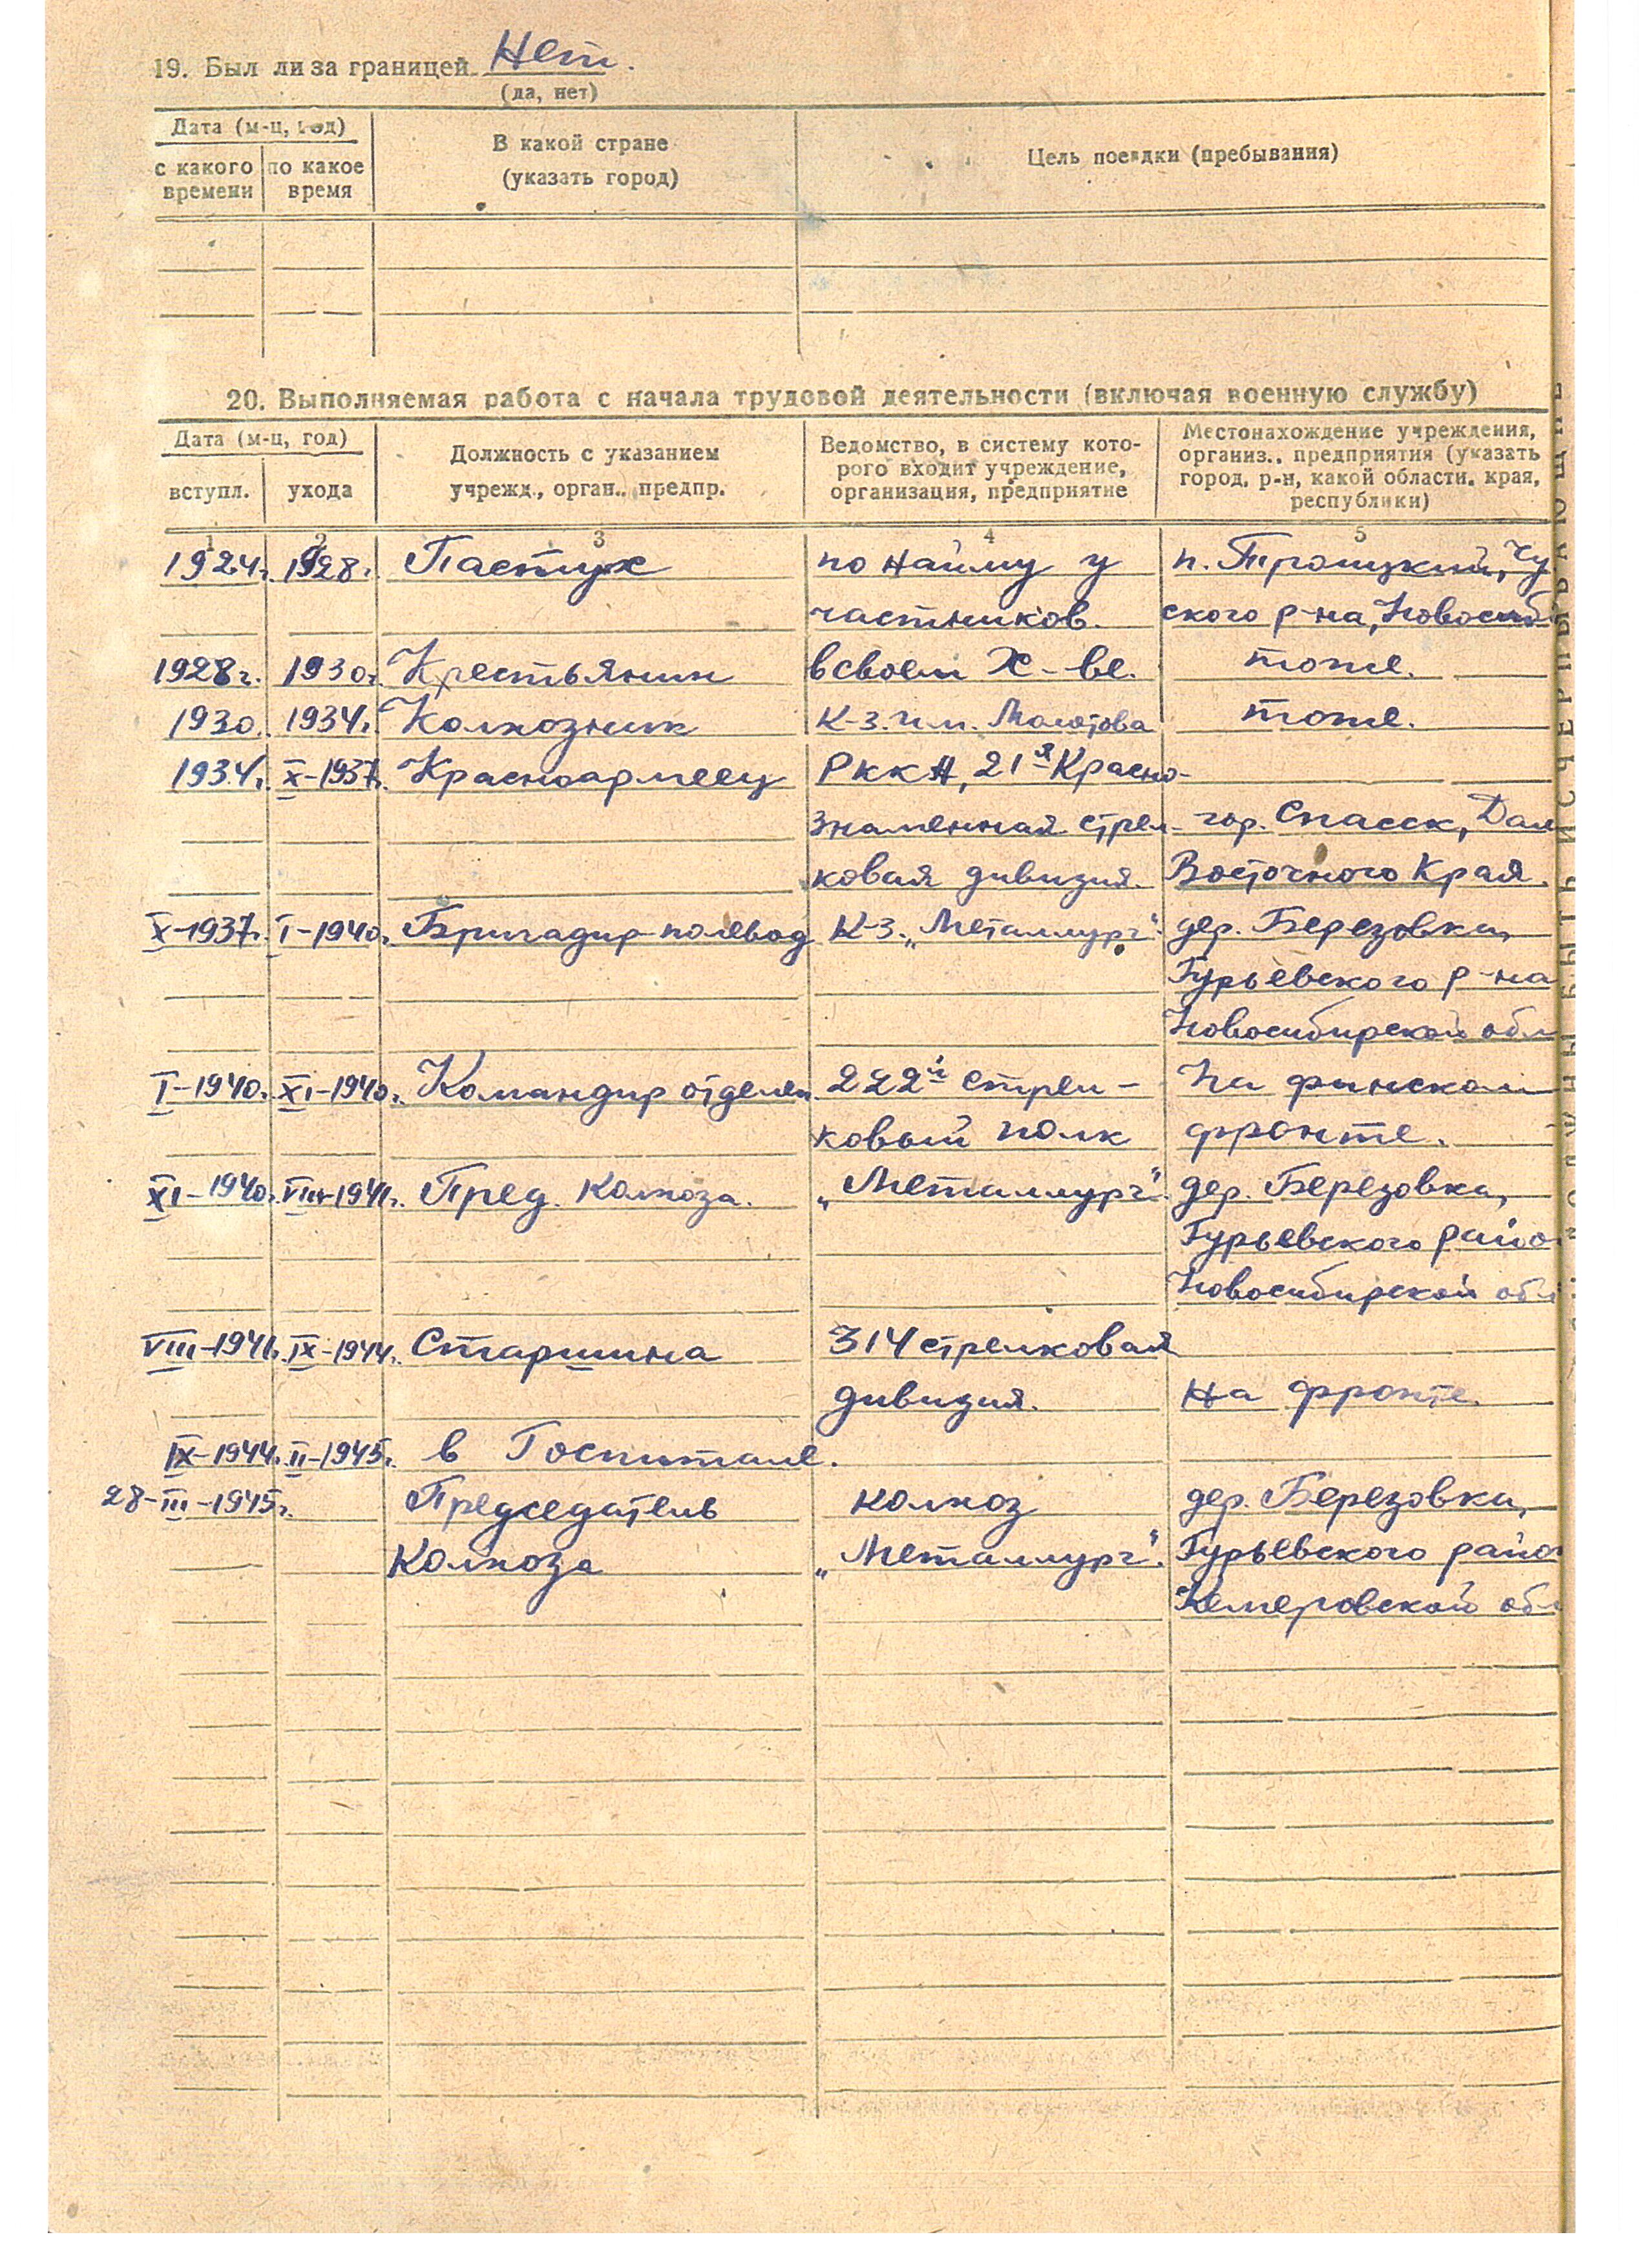 19. Был ли за границей Нет.
(да, нет)
Дата (м-ц, год)
с какого времени
по какое время
В какой стране
(указать город)
Цель поездки (пребывания)
20. Выполняемая работа с начала трудовой деятельности (включая военную службу)
Дата (м-ц, год)
вступл. ухода
Должность с указанием
учрежд., орган., предпр.
Ведомство, в систему кото-
рого входит учреждение,
организация, предприятие
Местонахождение учреждения,
организ., предприятия (указать
город, р-н, какой области, края,
республики)
1 2 3 4 5
1924г. 1928г. Пастух по найму у п. Троицкий,
частников. ского р-на, Новосиб
1928г. 1930г. Крестьянин в своем х-ве. тоже.
1930 1934г. Колхозник К-з. им. Молотова тоже.
1934г. X-1937г. Красноармеец РККА, 21я Красно-
знаменная стрел- гор. Спасск, Даль
ковая дивизия. Восточного Края.
X-1937г. I-1940г. Бригадир-полевод К-з. „Металлург". дер. Березовка,
Гурьевского р-на
Новосибирской обл
I-1940г. XI-1940г. Командир отделен 222й стрел- На финском
ковый полк фронте.
XI-1940г. VIII-1941г. Пред. Колхоза. „Металлург". дер. Березовка,
Гурьевского райо
Новосибирской обл
VIII-1941г. IX-1944г. Старшина 314 стрелковая
дивизия. На фронте.
IX-1944г. II-1945г. в Госпитале.
28-III-1945г. Председатель колхоз дер. Березовка,
Колхоза „Металлург". Гурьевского райо
Кемеровской обл